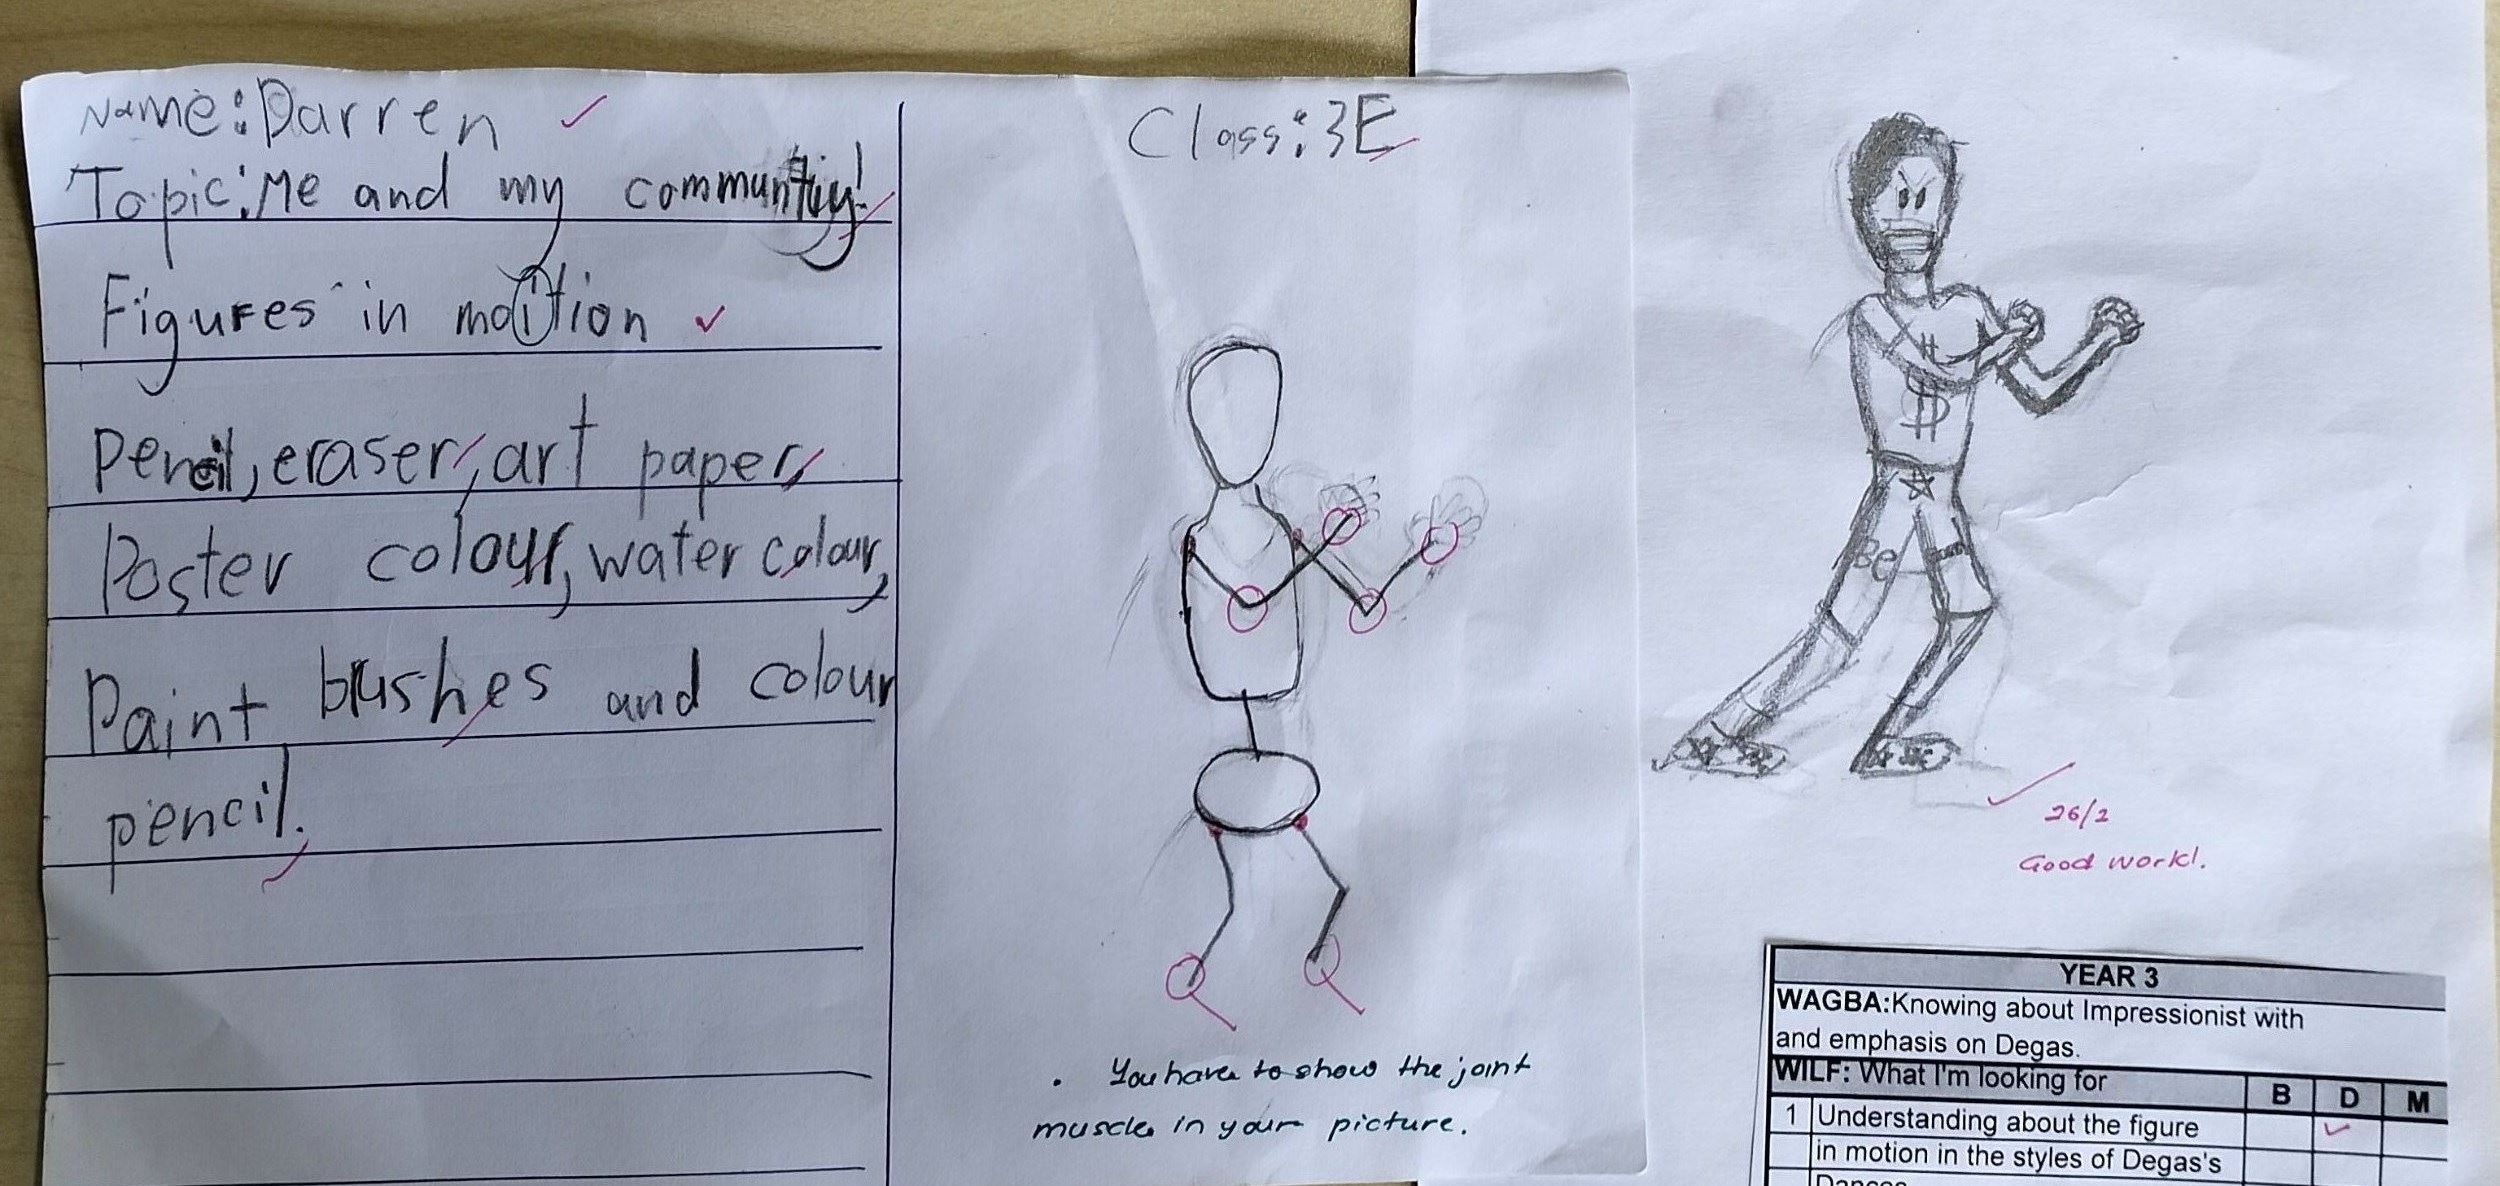 Name: Darren
Topic: Me and my community!
Figures in motion
Pencil, eraser, art paper,
Poster colour, water colour,
Paint brushes and colour
pencil.
Class: 3E
. You have to show the joint
muscle in your picture.
$
Be
26/2
Good work!.
YEAR 3
WAGBA:Knowing about Impressionist with
and emphasis on Degas.
WILF: What I'm looking for B D M
1 Understanding about the figure
in motion in the styles of Degas's
Dances